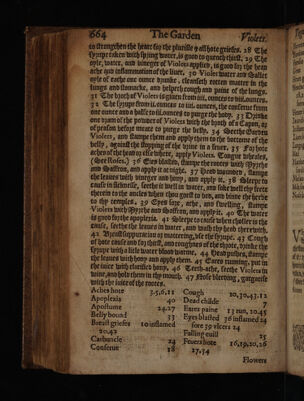 664 The Garden Violett.
to strengthen the heart for the plurisie & all hote griefes. 28 The
syrupe taken with spring water, is good to quench thirst. 29 The
oyle, water, and vineger of Violets applied, is good for the head
ache and inflammation of the liuer. 30 Violet water and Sallet
oyle of eache one ounce drunke, cleanseth rotten matter in the
lungs and stomacke, and helpeth cough and paine of the lungs.
31 The broth of Violets is giuen from iii. ounces to viii. ounces.
32 The syrupe from ii. ounces to iii. ounces, the conserue from
one ounce and a halfe to iii. ounces to purge the body. 33 Drinke
one dram of the powder of Violets with the broth of a Capon,
or peason before meate to purge the belly. 34 Seethe Garden
Violets, and stampe them and apply them to the bottome of the
belly, against the stopping of the vrine in a feuer. 35 For hote
aches of the head or else where, apply Violets. Tongue wheales,
(See Roses.) 36 Eyes blasted, stampe the rootes with Myrrhe
and Saffron, and apply it at night. 37 Head wounded, stampe
the leaues with vineger and hony, and apply it. 38 Sleepe to
cause in sicknesse, seethe it well in water, and soke well thy feete
therein to the ancles when thou goest to bed, and binde the herbe
to thy temples. 39 Eyes sore, ache, and swelling, stampe
Violets with Myrrhe and Saffron, and apply it. 40 The water
is good for the apoplexia. 41 Sleepe to cause when the feuer is the
cause, seethe the leaues in water, and wash thy feete therewith.
42 Breast suppuration or mattering, vse the syrupe. 43 Cough
of hote cause and for thirst, and roughnes of the throte, drinke the
syrupe with a little water blood warme. 44 Dead pushes, stampe
the leaues with hony and apply them. 45 Eares running, put in
the iuice with clarified hony. 46 Teeth-ache, seethe Violets in
wine, and hold them in thy mouth. 47 Nose bleeding, gargarize
with the iuice of the rootes.
Aches hote 3.5.6.11
Apoplexia 40
Apostume 24.27
Belly bound 33
Breast griefes 10 inflamed
20.42
Carbuncle 24
Conserue 18
Cough 10,30,43.12
Dead childe 7
Eares paine 13 run, 20.45
Eyes blasted 36 inflamed 24
sore 39 vlcers 24
Falling euill 25
Feuers hote 16,19,20,26
27,34
Flowers